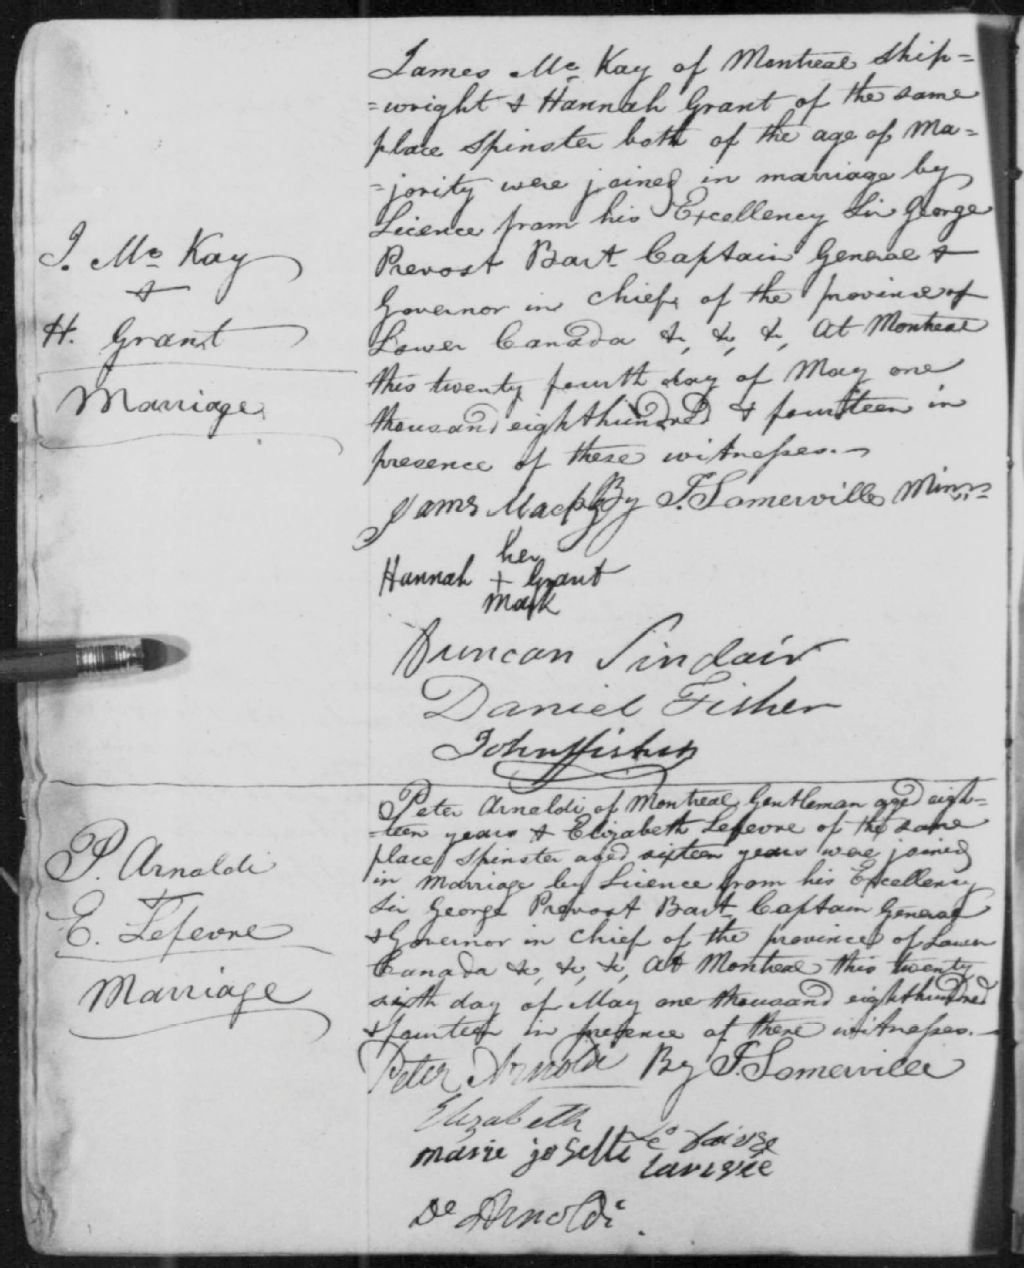 James Mc Kay of Montreal Ship=
=wright & Hannah Grant of the same
place Spinster both of the age of Ma=
=jority were joined in marriage by
Licence from his Excellency Sir George
Prevost Bart. Captain General &
Governor in Chief of the province of
Lower Canada &, &, &, At Montreal
this twenty fourth day of May one
thousand eighthundred & fourteen in
presence of these witnesses.
J. Mc Kay
&
H. Grant
Marriage
James By J. Somerville Minr.
her
Hannah + Grant
mark
Duncan Sinclair
Daniel Fisher
John Fisher
Peter Arnoldi of Montreal Gentleman aged eigh=
=teen years & Elizabeth Lefevre of the same
place Spinster aged sixteen years were joined
in Marriage by Licence from his Excellency
Sir George Prevost Bart. Captain General
& Governor in Chief of the province of Lower
Canada &, &, &, At Montreal this twenty
sixth day of May one thousand eighthundred
& fourteen in presence of these witnesses.
P. Arnoldi
&
E. Lefevre
Marriage
Peter Arnoldi By J. Somerville
Elizabeth
marie josette
Arnoldi